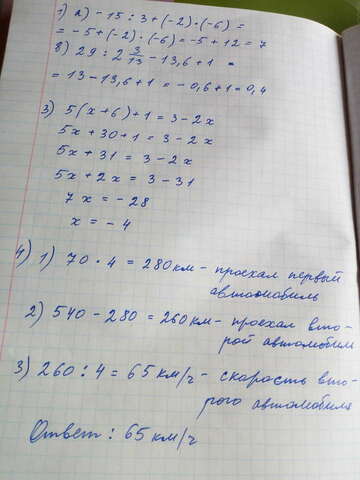 1) а) -15 : 3 + (-2) · (-6) =
= -5 + (-2) · (-6) = -5 + 12 = 7
в) 29 : 2 3/13 - 13,6 + 1 =
= 13 - 13,6 + 1 = -0,6 + 1 = 0,4
3) 5(x + 6) + 1 = 3 - 2x
5x + 30 + 1 = 3 - 2x
5x + 31 = 3 - 2x
5x + 2x = 3 - 31
7x = -28
x = -4
4) 1) 70 · 4 = 280 км - проехал первый
автомобиль
2) 540 - 280 = 260 км - проехал вто-
рой автомобиль
3) 260 : 4 = 65 км/ч - скорость вто-
рого автомобиля
Ответ : 65 км/ч